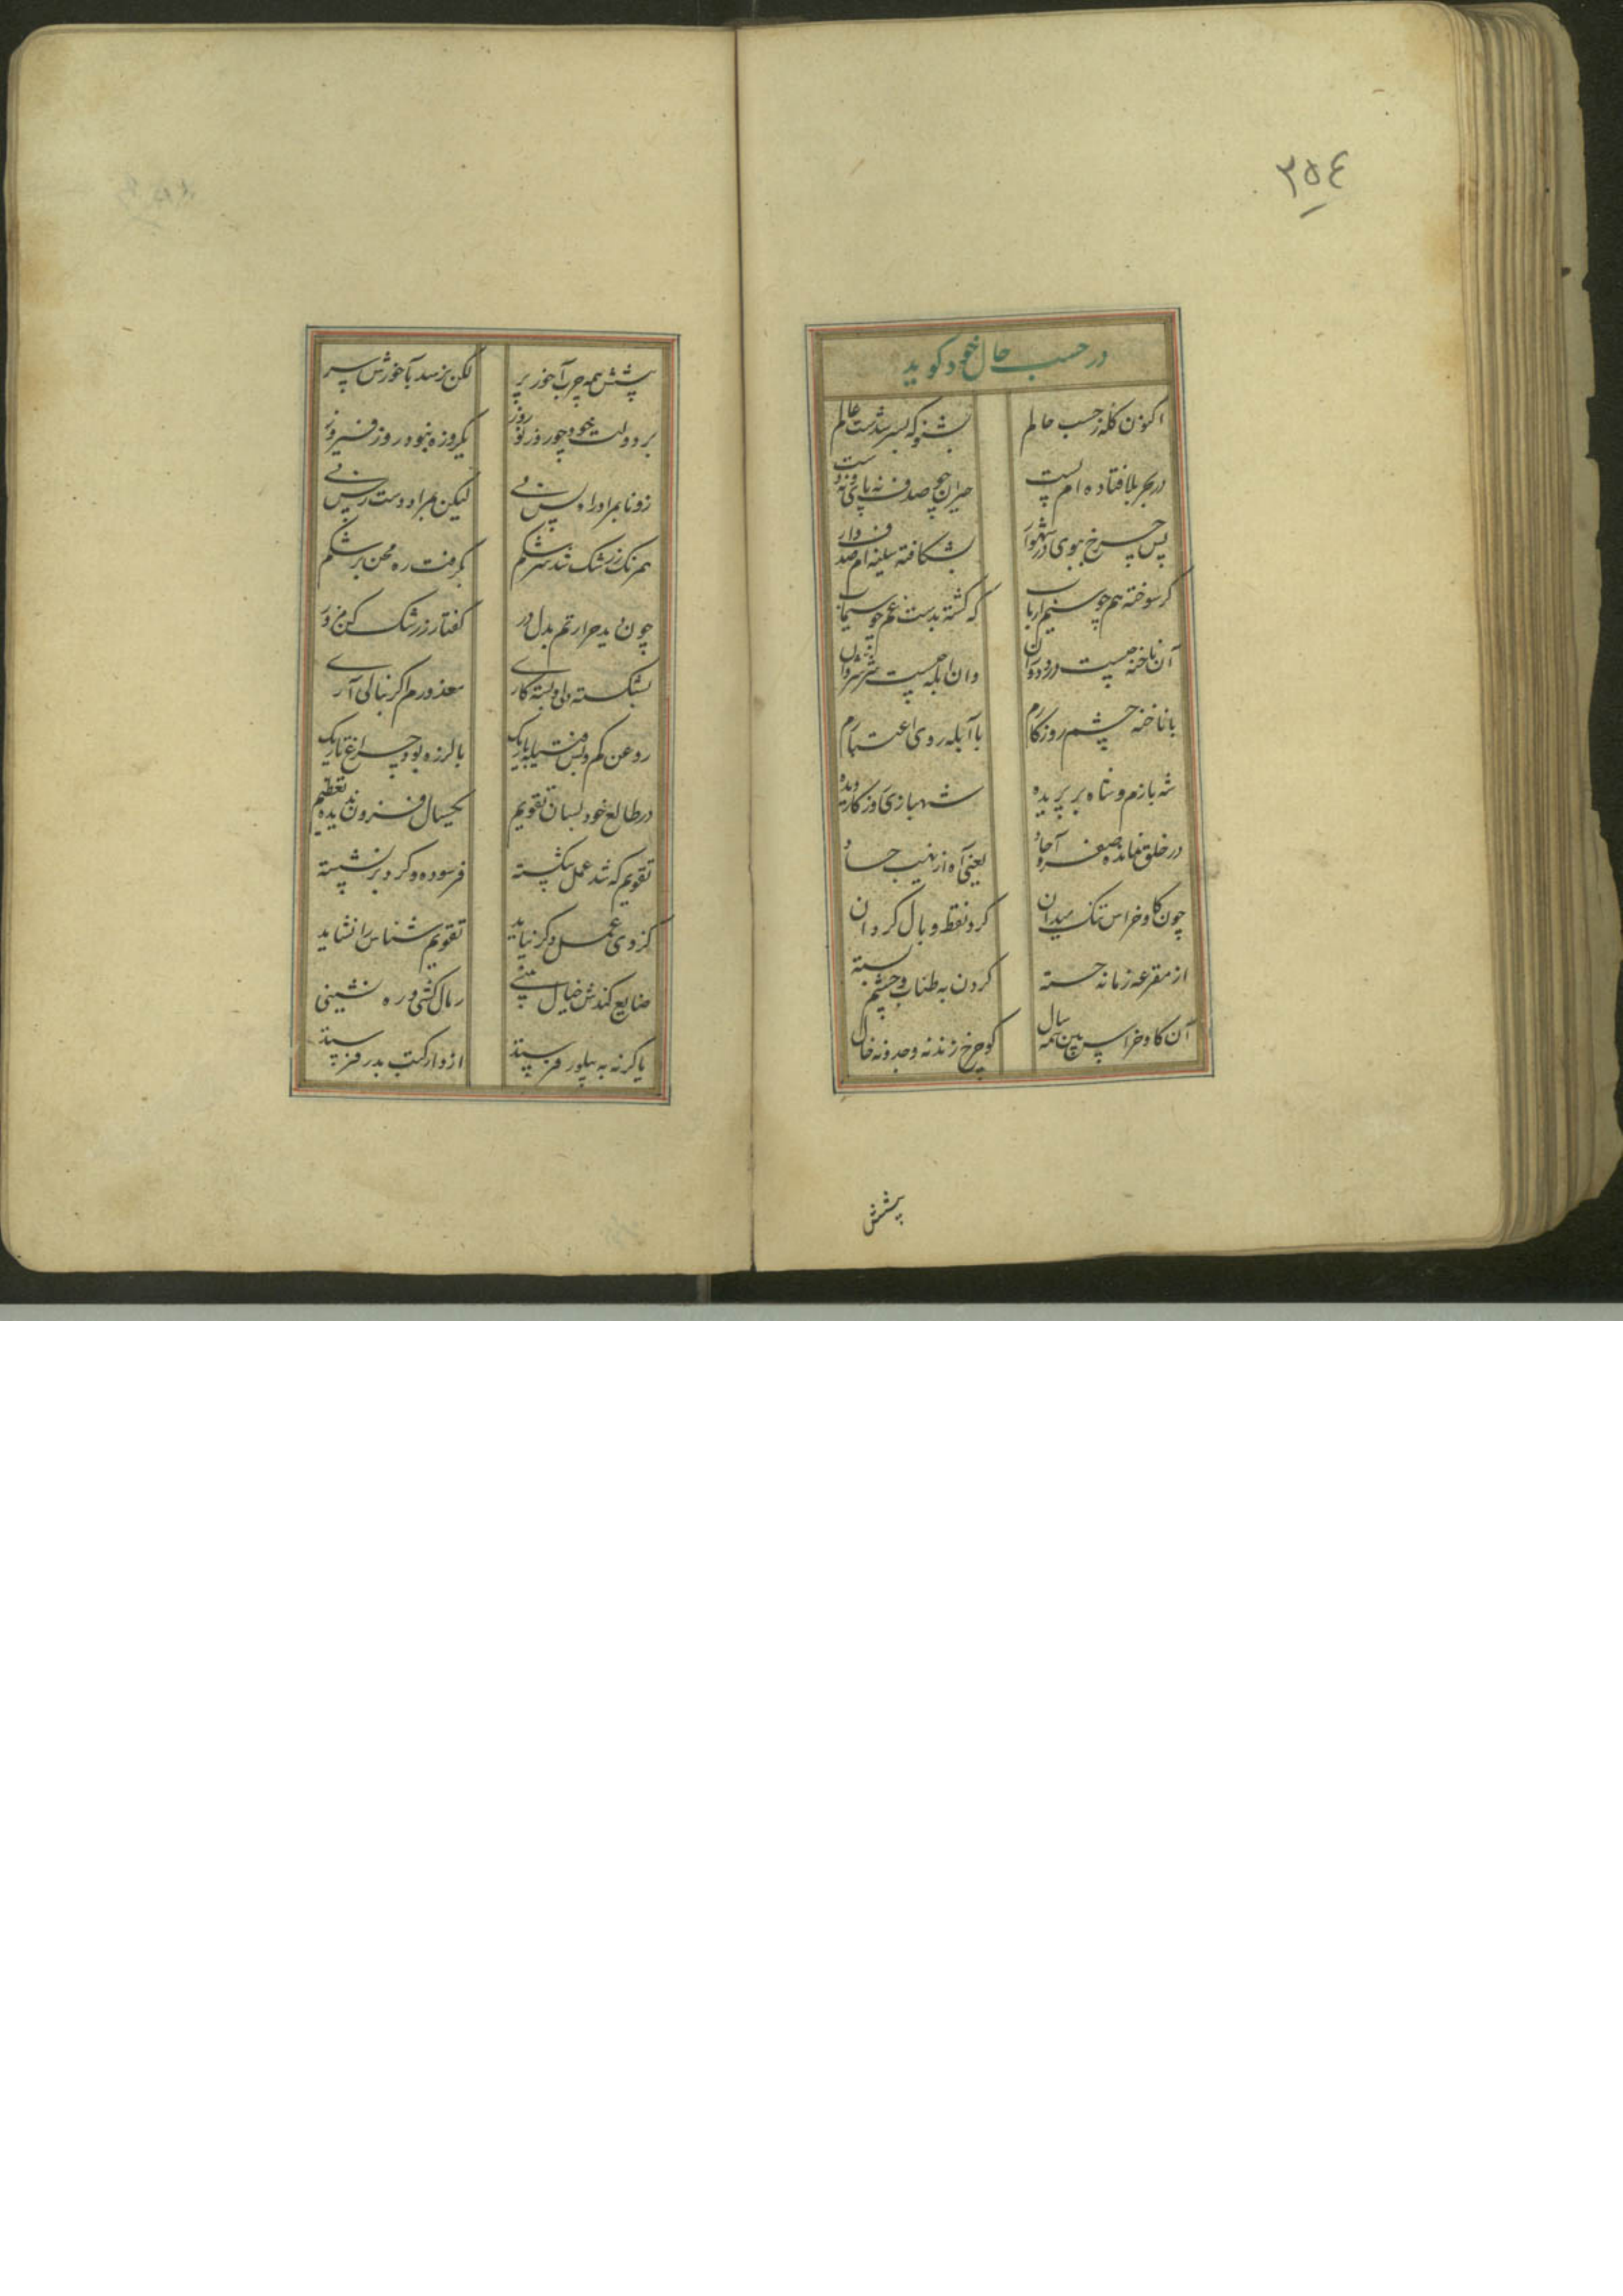 ٢٥٤
در حسب حال خود کوید
اکنون کله ز حسب حالم
بشنو که بسر شدست عالم
در بحر بلا فتاده ام پست
حیران چو صدف نه پای و نه دست
پس چرخ ببوی در شهوار
بشکافته سینه ام صدف وار
کر سوخته هم چو سیم ارباب
که کشته بدست غم چو سیماب
آن ناخنه چیست درد دوران
وان ابله چیست شر شروان
با ناخنه چشم روزکارم
با آبله روی اعتبارم
شه بازم و شاه بر پریده
شهبازی روزکار دیده
در خلق نمانده صفرو آحاد
یعنی آه از نهیب حساد
چون کاو خراس تنک میدان
کرد نقط وبال کردان
از مقرعه زمانه خسته
کردن به طناب و چشم بسته
آن کاو خراس بین همه سال
کو چرخ زند نه وجد و نه حال
پشتش
پشتش همه چرب آخور پر
لکن نرسد بآخورش سر
بر دولت خود چو روز نوروز
یکروزه نبوده روز فیروز
زونا بمراد راه پس نی
لیکن بمراد دست رس نی
همرنک زرشک شد سرشکم
بکرفت ره محن بر شکم
چون دید حرارتم بدل در
کفتا ز زرشک کن مزور
بشکسته دلی و بسته کاری
معذورم اکر بنالی آری
روغن کم و بس فتیله باریک
با لرزه بود چراغ تاریک
در طالع خود بسان تقویم
یکسال فزون ندیده تعظیم
تقویم که شد عمل شکسته
فرسوده و کرد بر نشسته
کز وی عمل دکر نیاید
تقویم شناس را نشاید
ضایع کندش خیال بینی
رمال کشی و ره نشینی
یا کرنه به پیلور فرستد
ادوار کتب بدر فرستد